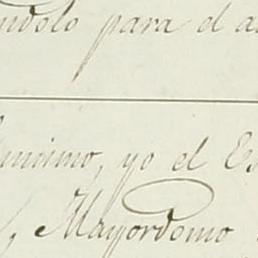 ndolo para el a
mismo, yo el Es
, Mayordomo